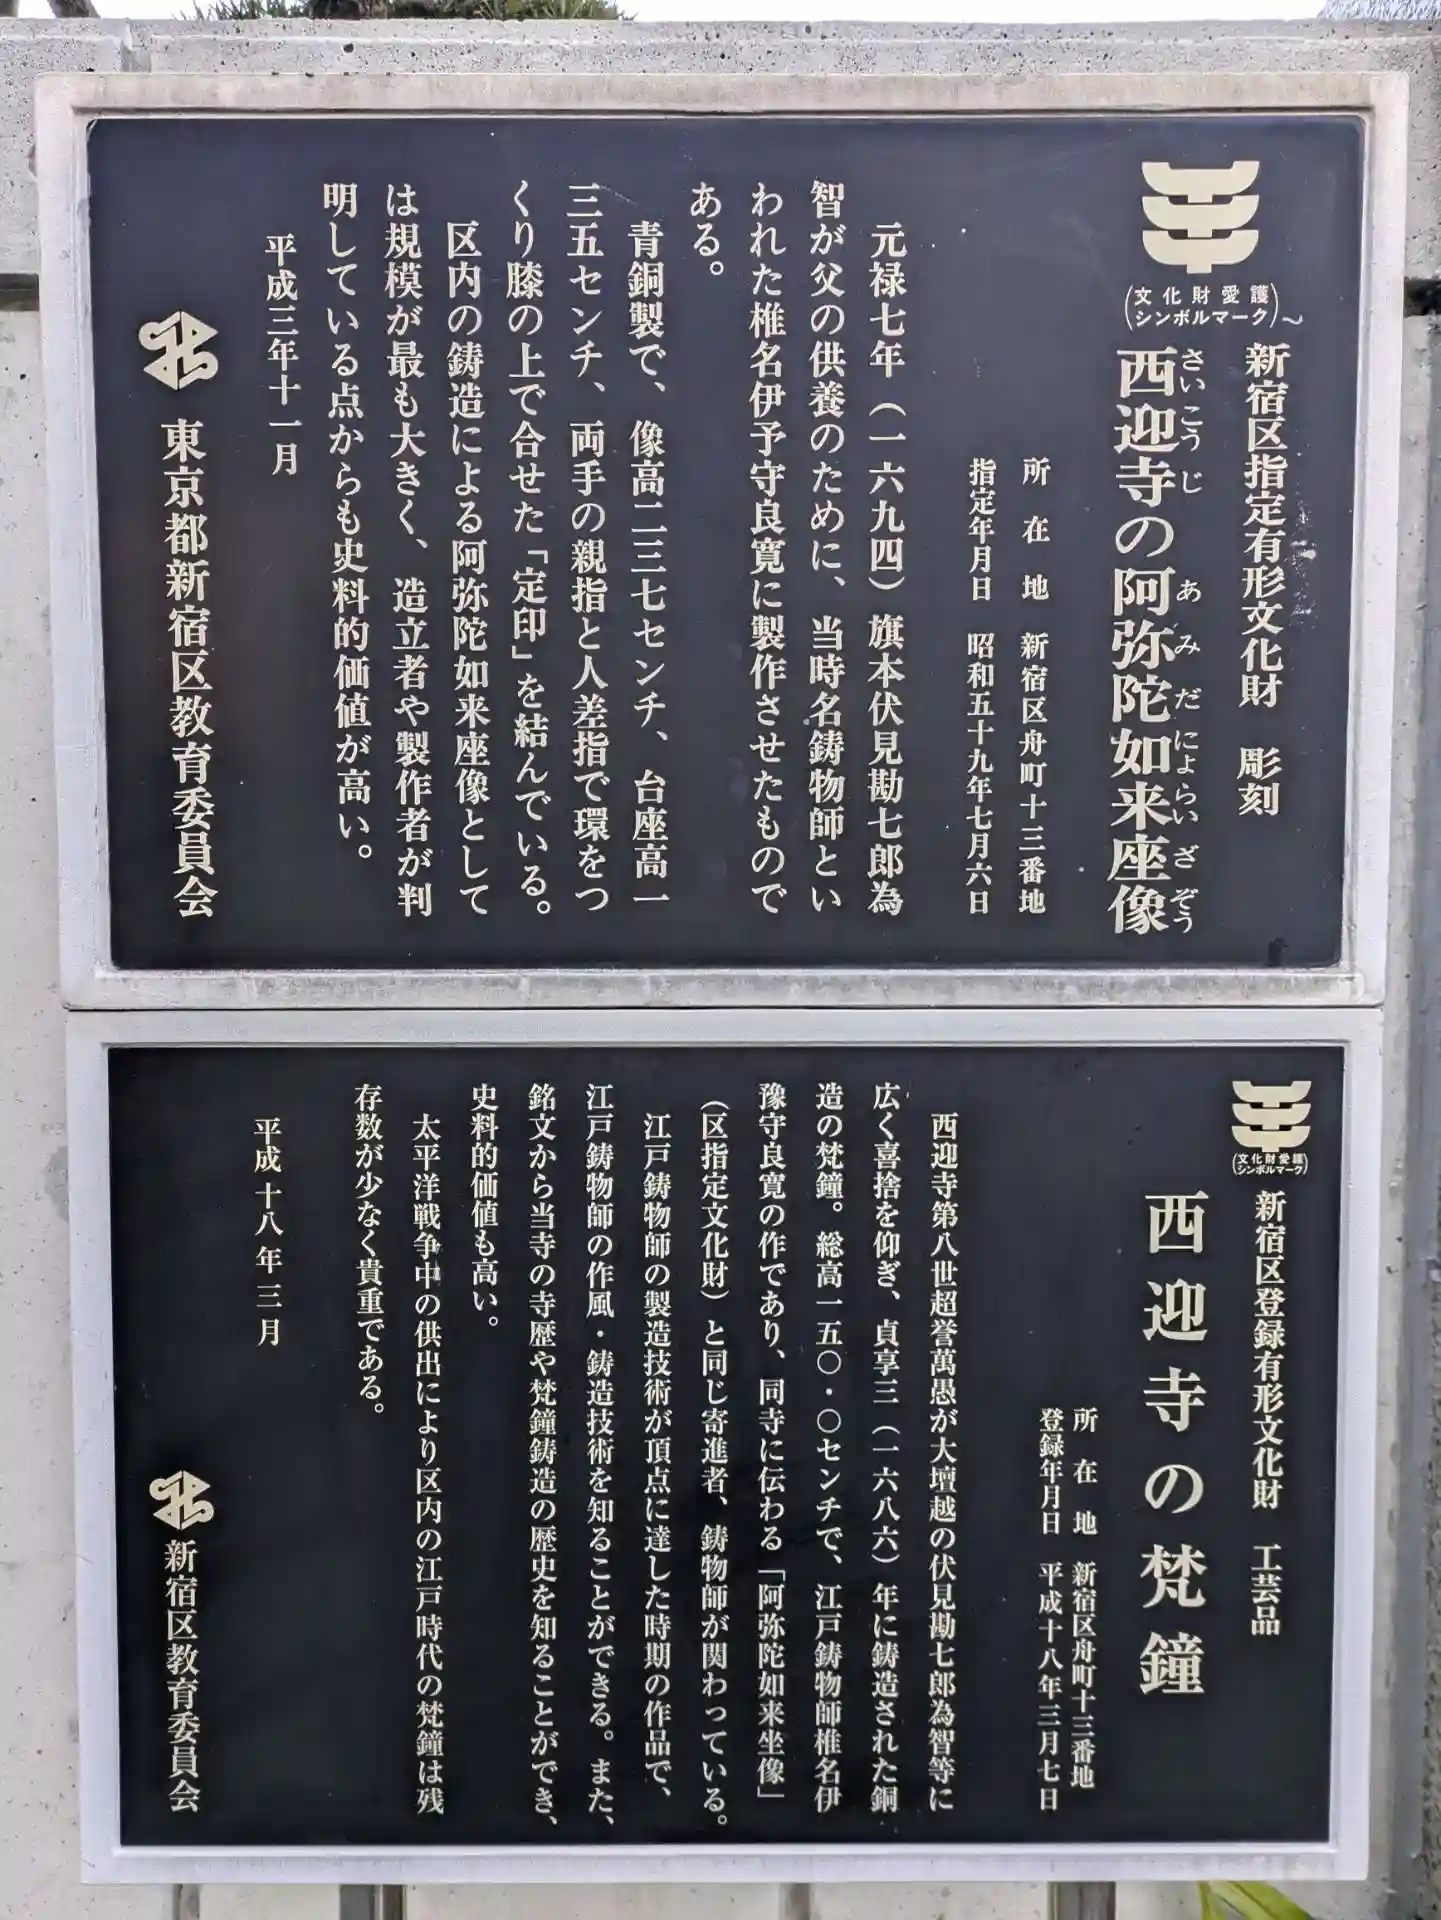 (文化財愛護
シンボルマーク)
新宿区指定有形文化財　彫刻
西迎寺の阿弥陀如来座像
さいこうじ　あみだにょらいざぞう
所在地　新宿区舟町十三番地
指定年月日　昭和五十九年七月六日
元禄七年（一六九四）旗本伏見勘七郎為
智が父の供養のために、当時名鋳物師とい
われた椎名伊予守良寛に製作させたもので
ある。
青銅製で、像高二三七センチ、台座高一
三五センチ、両手の親指と人差指で環をつ
くり膝の上で合せた「定印」を結んでいる。
区内の鋳造による阿弥陀如来座像として
は規模が最も大きく、造立者や製作者が判
明している点からも史料的価値が高い。
平成三年十一月
東京都新宿区教育委員会
(文化財愛護
シンボルマーク)
新宿区登録有形文化財　工芸品
西迎寺の梵鐘
所在地　新宿区舟町十三番地
登録年月日　平成十八年三月七日
西迎寺第八世超誉萬愚が大壇越の伏見勘七郎為智等に
広く喜捨を仰ぎ、貞享三（一六八六）年に鋳造された銅
造の梵鐘。総高一五〇・〇センチで、江戸鋳物師椎名伊
豫守良寛の作であり、同寺に伝わる「阿弥陀如来坐像」
（区指定文化財）と同じ寄進者、鋳物師が関わっている。
江戸鋳物師の製造技術が頂点に達した時期の作品で、
江戸鋳物師の作風・鋳造技術を知ることができる。また、
銘文から当寺の寺歴や梵鐘鋳造の歴史を知ることができ、
史料的価値も高い。
太平洋戦争中の供出により区内の江戸時代の梵鐘は残
存数が少なく貴重である。
平成十八年三月
新宿区教育委員会